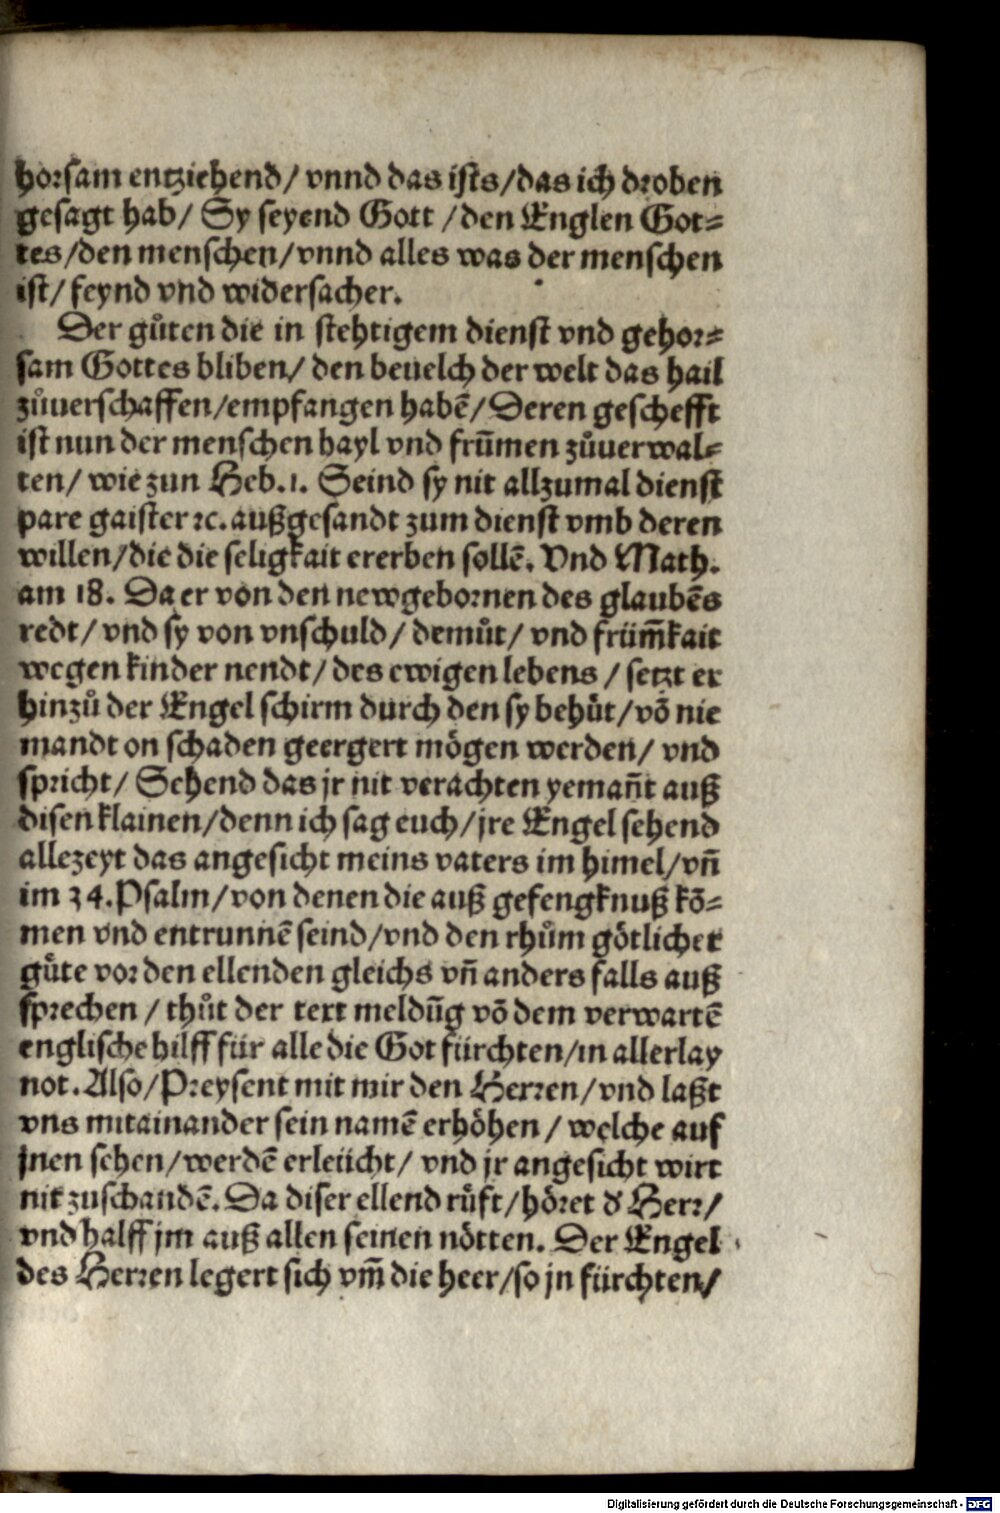 horsam entziehend/ vnnd das ists/das ich droben
gesagt hab/ Sy seyend Gott /den Englen Got=
tes/den menschen/vnnd alles was der menschen
ist/ feynd vnd widersacher.
Der gůten die in stehtigem dienst vnd gehor=
sam Gottes bliben/ den beuelch der welt das hail
zůuerschaffen/empfangen habē/ Deren geschefft
ist nun der menschen hayl vnd frūmen zůuerwal=
ten/ wie zun Heb.1. Seind sy nit allzumal dienst
pare gaister ꝛc. außgesandt zum dienst vmb deren
willen/die die seligkait ererben sollē. Vnd Math.
am 18. Da er von den newgebornen des glaubēs
redt/ vnd sy von vnschuld/ demůt/ vnd früm̄kait
wegen kinder nendt/ des ewigen lebens / setzt er
hinzů der Engel schirm durch den sy behůt/vō nie
mandt on schaden geergert mögen werden/ vnd
spricht/ Sehend das jr nit verachten yemañt auß
disen klainen/denn ich sag euch/jre Engel sehend
allezeyt das angesicht meins vaters im himel/vñ
im 34.Psalm/von denen die auß gefengknuß kō=
men vnd entrunnē seind/vnd den rhům götlicher
gůte vor den ellenden gleichs vñ anders falls auß
sprechen / thůt der text meldūg vō dem verwartē
englische hilff für alle die Got fürchten/in allerlay
not. Also/Preysent mit mir den Herren/vnd laßt
vns mitainander sein namē erhöhen / welche auf
jnen sehen/werdē erleücht/ vnd jr angesicht wirt
nit zuschandē. Da diser ellend růft/höret d' Herr/
vnd halff jm auß allen seinen nötten. Der Engel
des Herren legert sich vm̄ die heer/so jn fürchten/
Digitalisierung gefördert durch die Deutsche Forschungsgemeinschaft - DFG